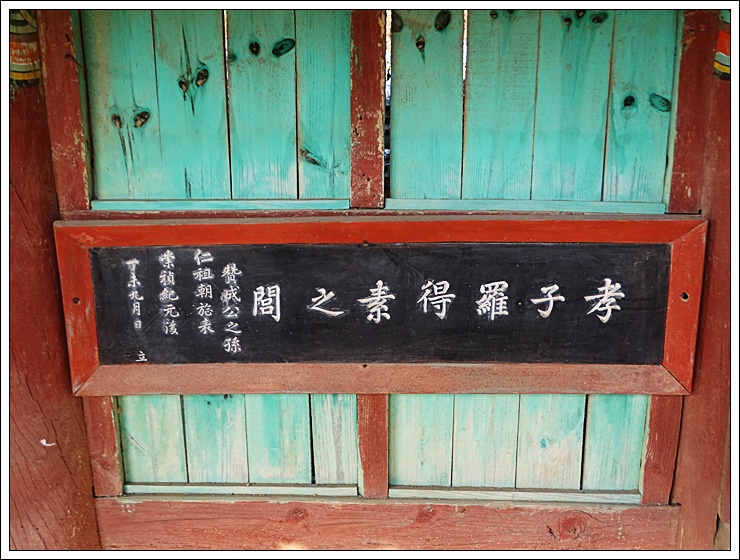 孝子羅得素之閭
贊城公之孫
仁祖朝旌表
崇禎紀元後
丁未九月日 立